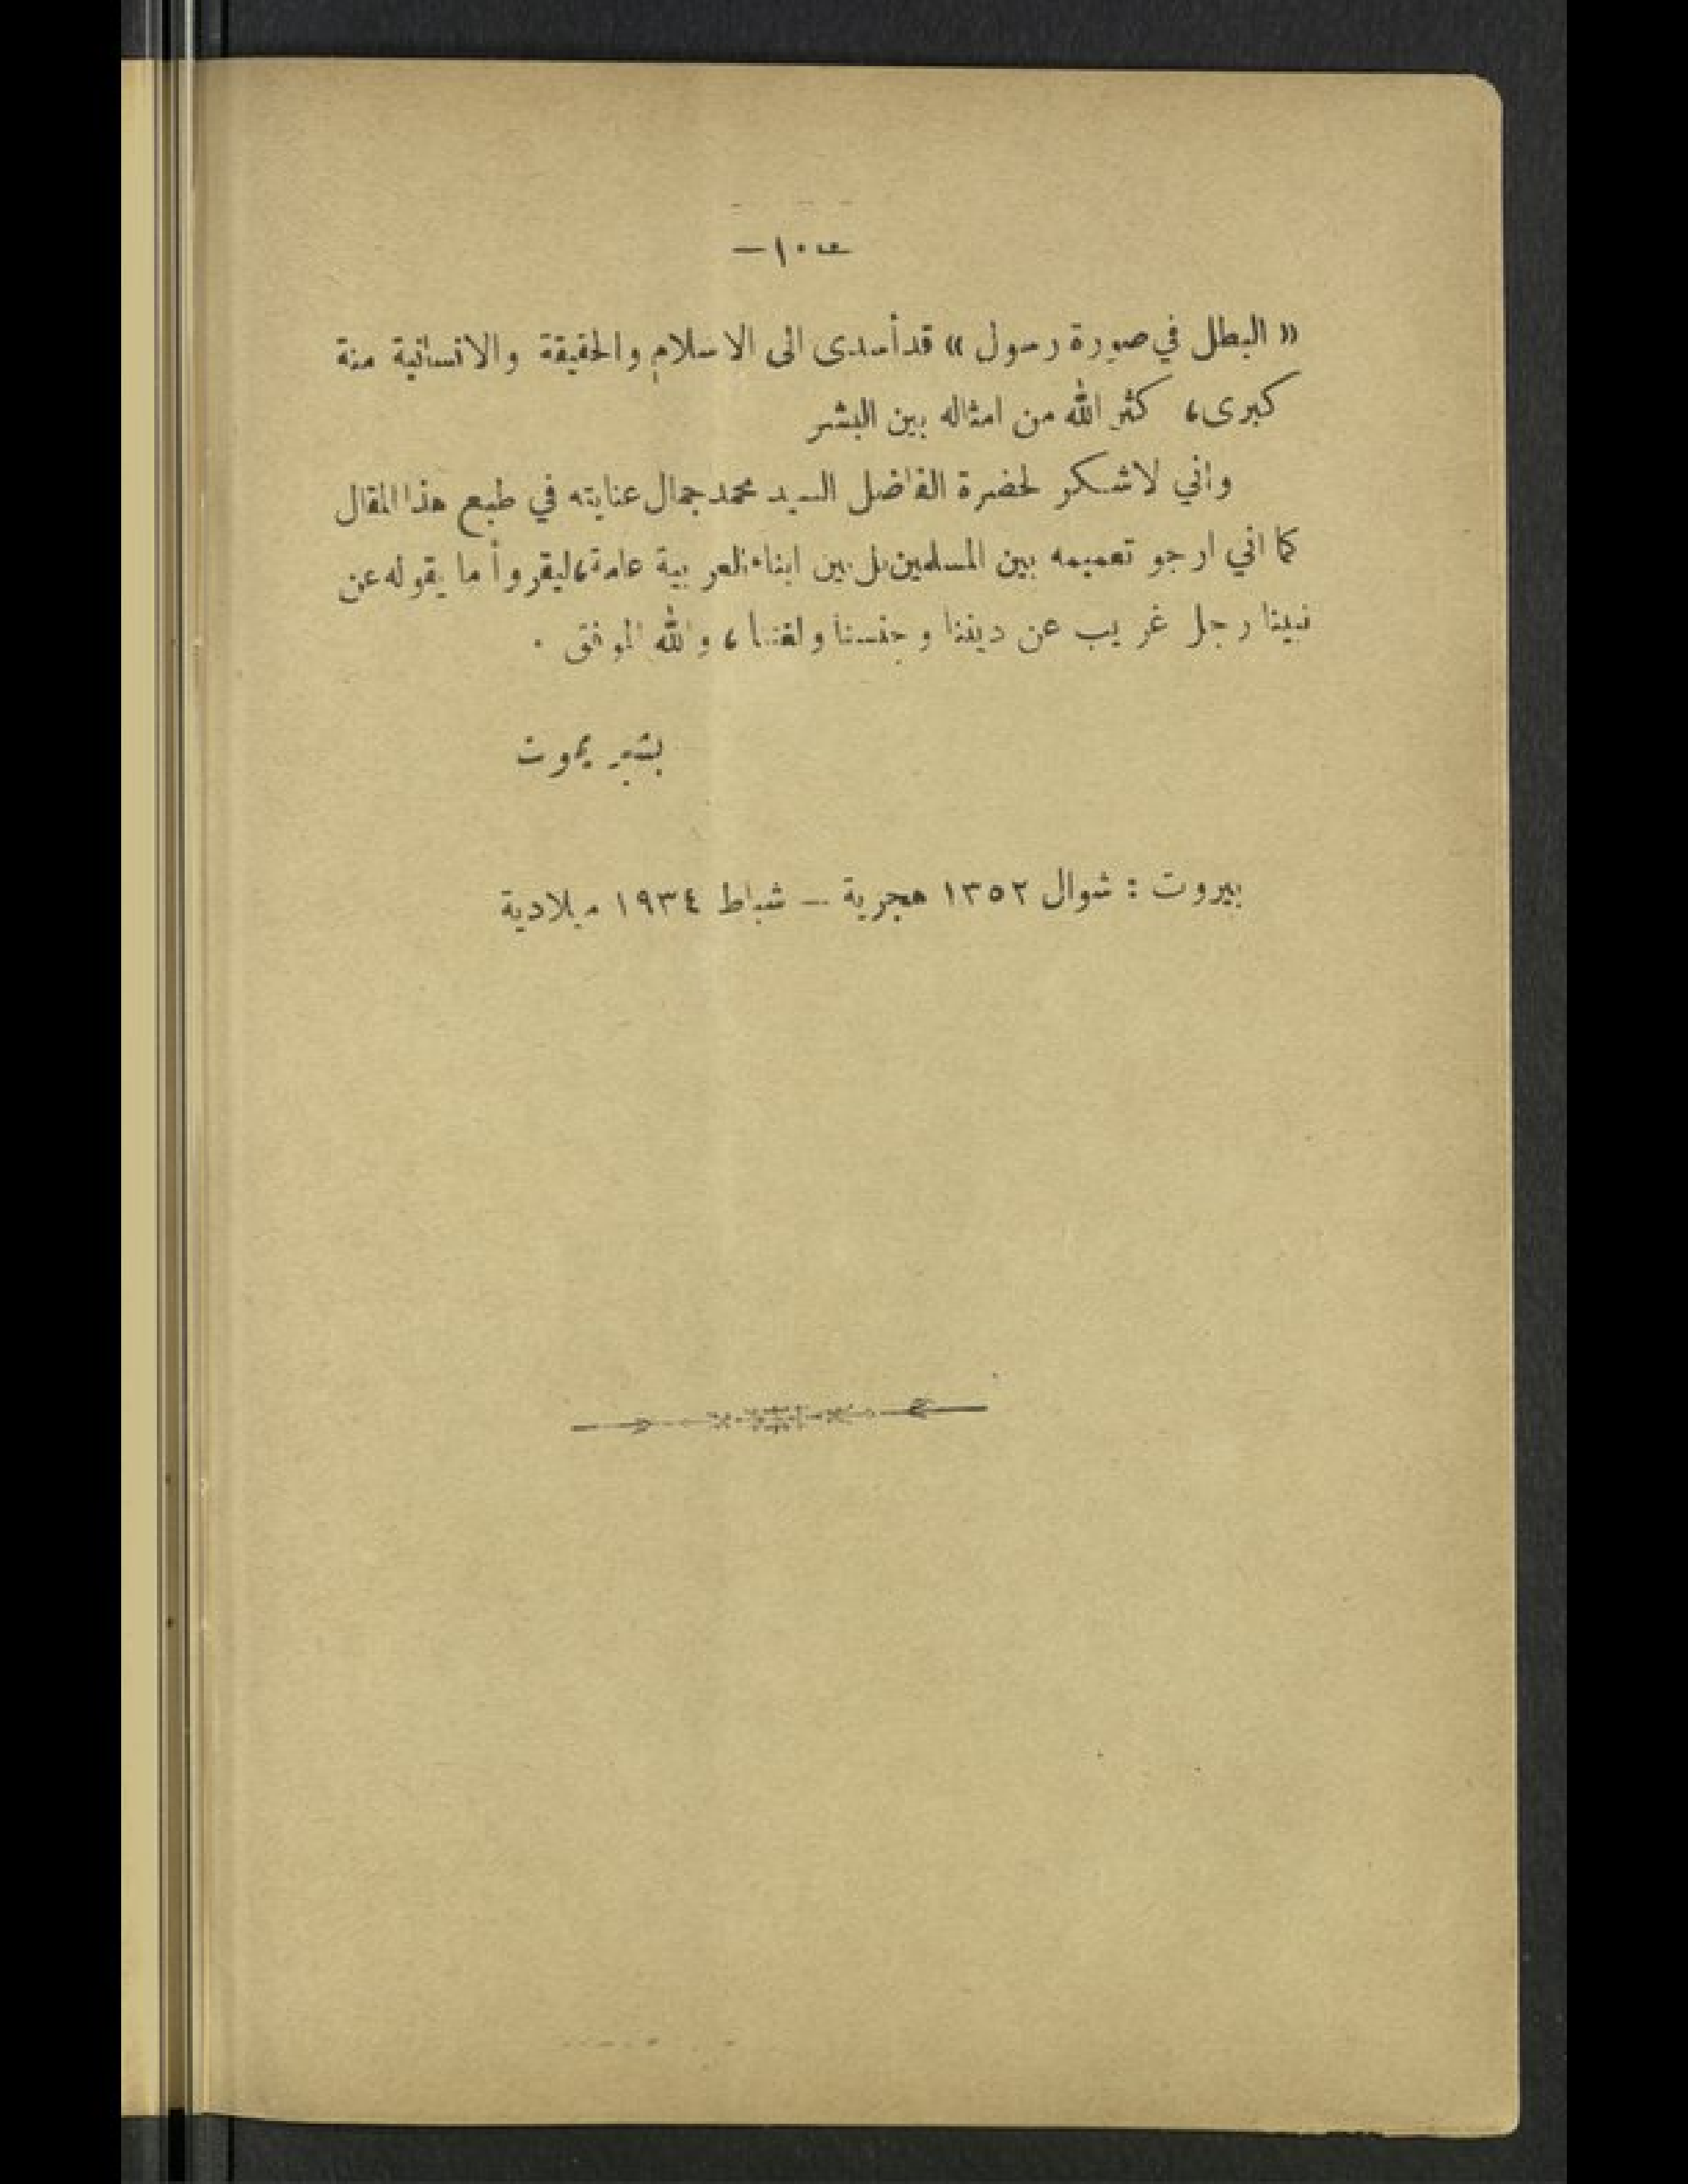 — ١٠ —
« البطل في صورة رسول » قد أسدى الى الاسلام والحقيقة والانسانية منة
كبرى، كثر الله من امثاله بين البشر
واني لاشكر لحضرة الفاضل السيد محمد جمال عنايته في طبع هذا المقال
كما اني ارجو تعميمه بين المسلمين بل بين ابناء العربية عامة، ليقروأ ما يقوله عن
نبينا رجل غريب عن ديننا وجنسنا ولغتنا، والله الموفق .
بشير يموت
بيروت : شوال ١٣٥٢ هجرية — شباط ١٩٣٤ ميلادية